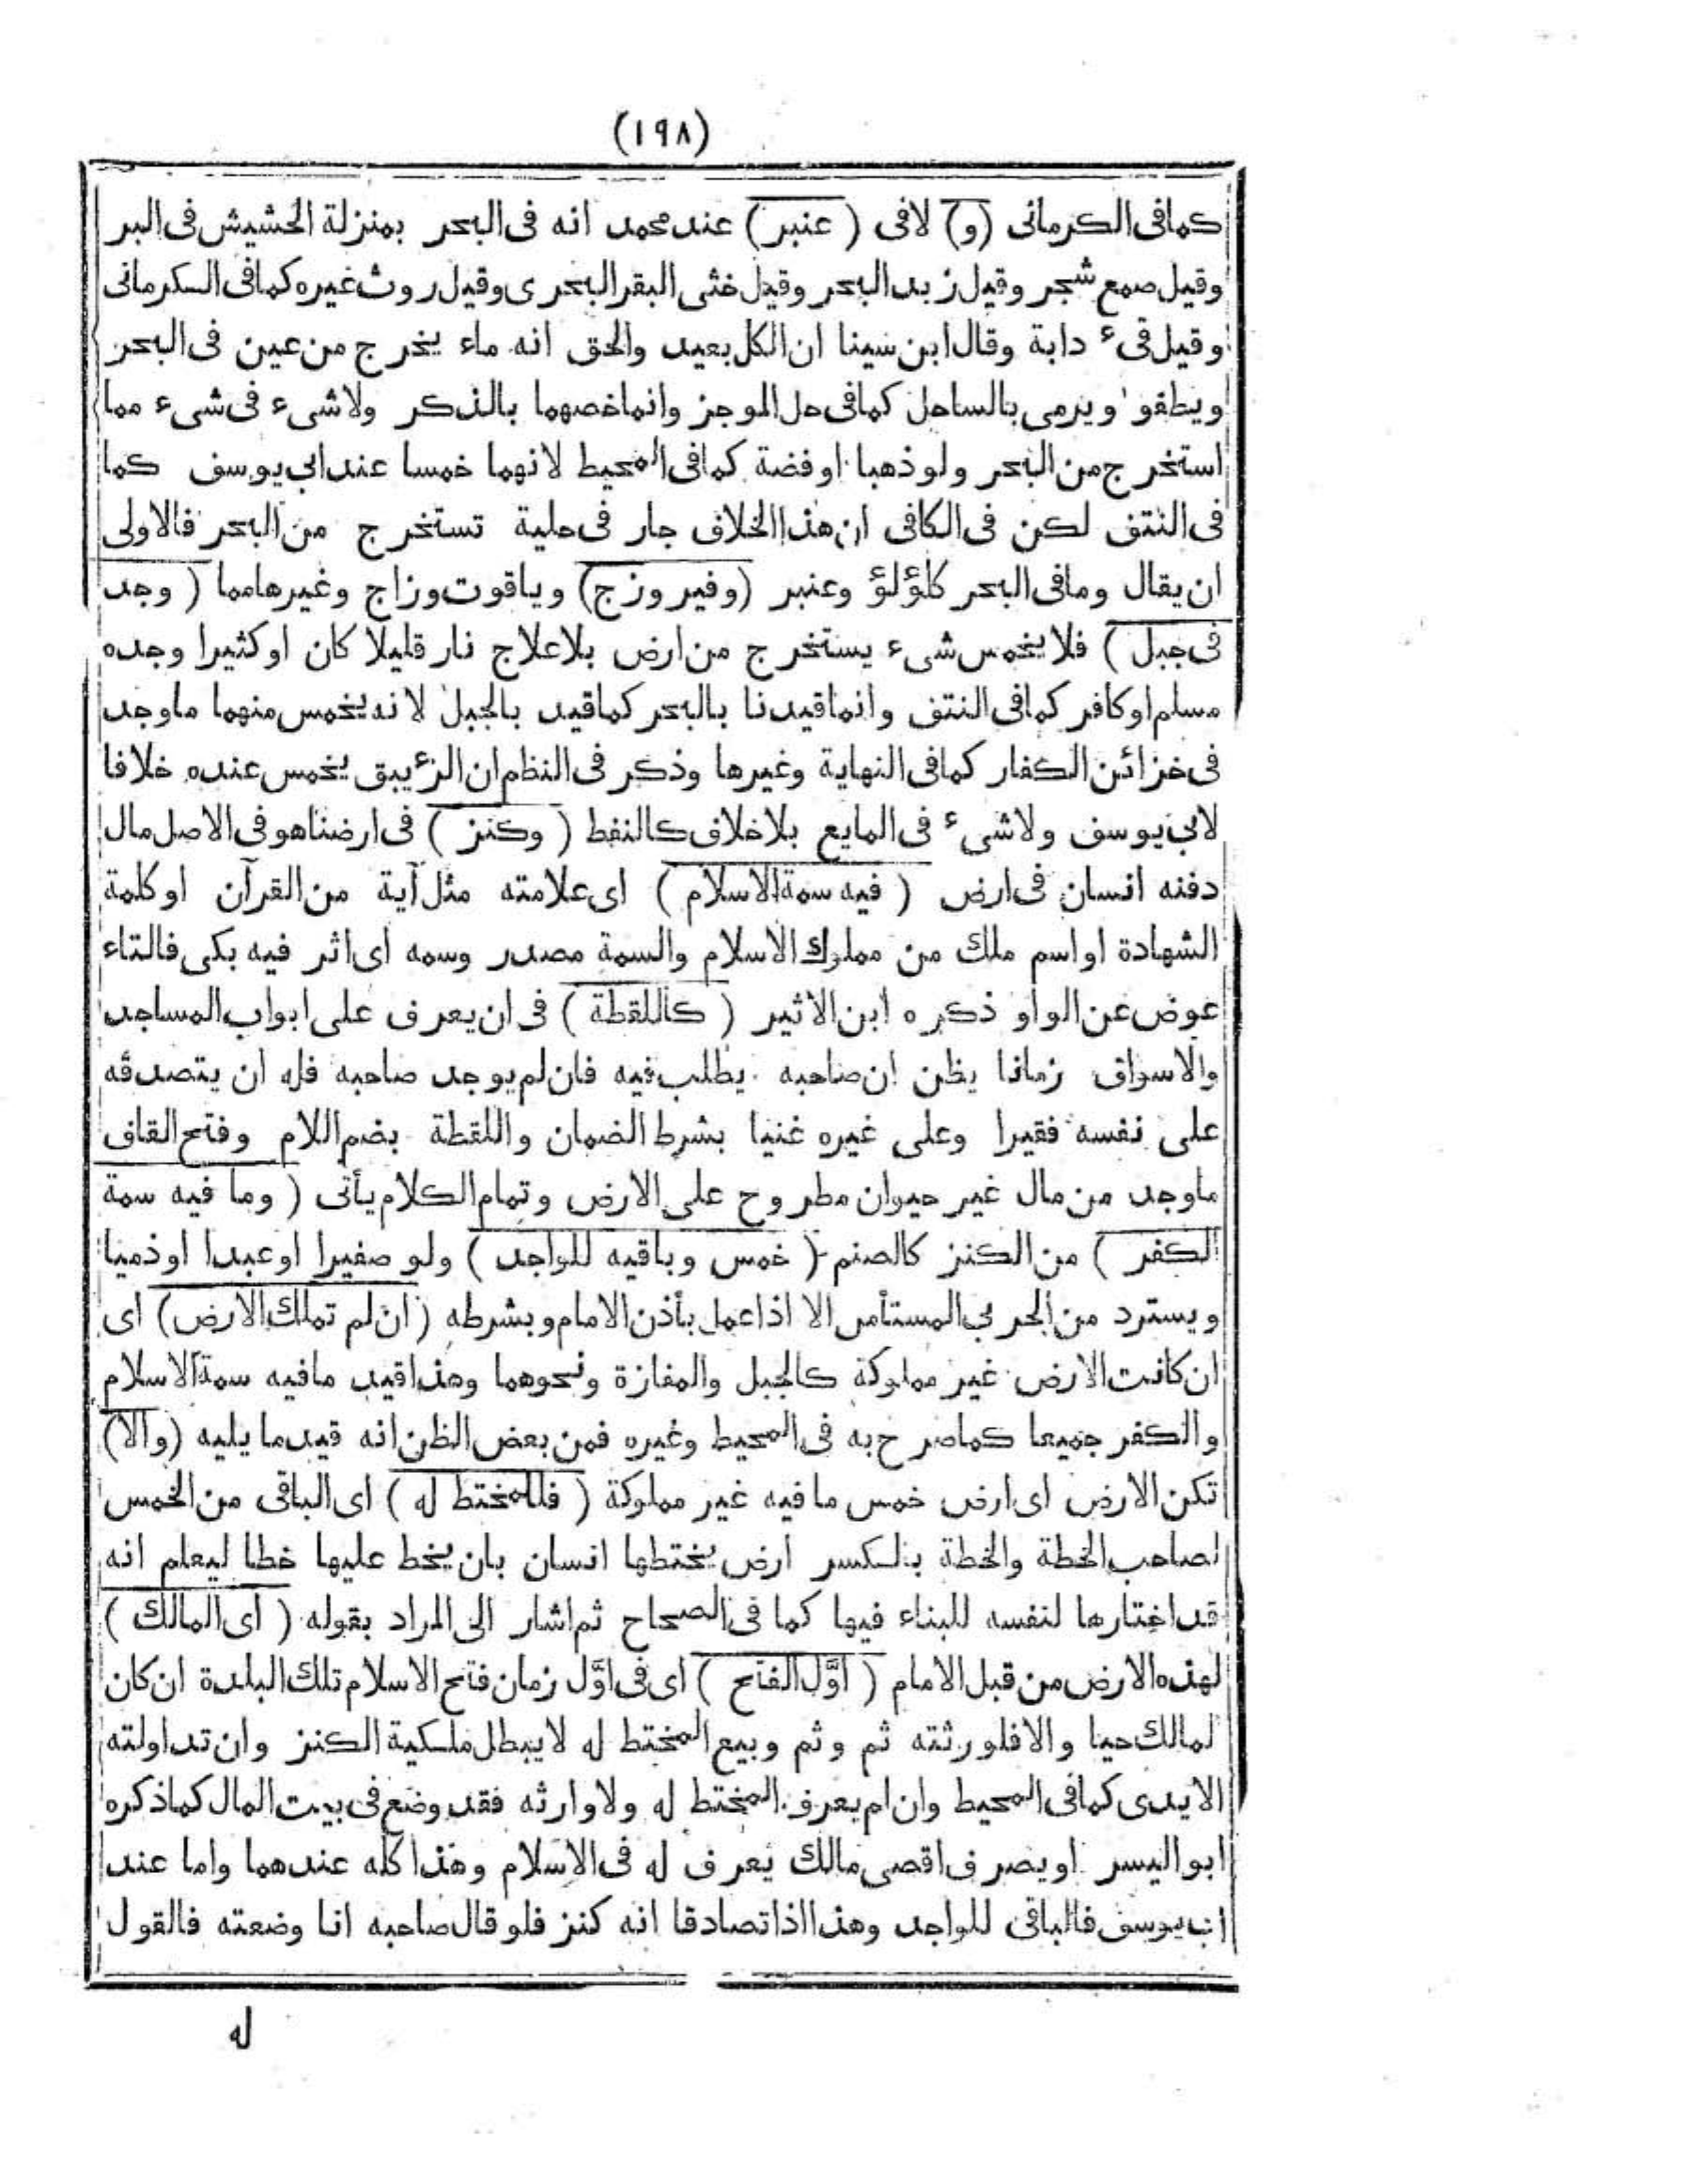 (١٩٨)
كمافى الكرمانى (و) لافى (عنبر) عند محمد انه فى البحر بمنزلة الحشيش فى البر
وقيل صمع شجر وقيل زبد البحر وقيل خثى البقر البحرى وقيل روث غيره كمافى السكرمانى
وقيل قىء دابة وقال ابن سينا ان الكل بعيد والحق انه ماء يخرج من عين فى البحر
ويطفو ويرمى بالساحل كمافى حل الموجز وانما خصهما بالذكر ولاشىء فى شىء مما
استخرج من البحر ولو ذهبا اوفضة كمافى المحيط لانهما خمسا عند ابى يوسف كما
فى النتف لكن فى الكافى ان هذا الخلاف جار فى حلية تستخرج من البحر فالاولى
ان يقال ومافى البحر كلؤلؤ وعنبر (وفيروزج) وياقوت وزاج وغيرهامما (وجد
فى جبل) فلايخمس شىء يستخرج من ارض بلاعلاج نار قليلا كان اوكثيرا وجده
مسلم اوكافر كمافى النتف وانماقيدنا بالبحر كماقيد بالجبل لانه يخمس منهما ماوجد
فى خزائن الكفار كمافى النهاية وغيرها وذكر فى النظم ان الزئيبق يخمس عنده خلافا
لابى يوسف ولاشىء فى المايع بلاخلاف كالنفط (وكنز) فى ارضناهو فى الاصل مال
دفنه انسان فى ارض (فيه سمة الاسلام) اى علامته مثل آية من القرآن اوكلمة
الشهادة او اسم ملك من ملوك الاسلام والسمة مصدر وسمه اى اثر فيه بكى فالتاء
عوض عن الواو ذكره ابن الاثير (كاللقطة) فى ان يعرف على ابواب المساجد
والاسواق زمانا يظن ان صاحبه يطلب فيه فان لم يوجد صاحبه فله ان يتصدقه
على نفسه فقيرا وعلى غيره غنيا بشرط الضمان واللقطة بضم اللام وفتح القاف
ماوجد من مال غير حيوان مطروح على الارض وتمام الكلام يأتى (وما فيه سمة
الكفر) من الكنز كالصنم (خمس وباقيه للواجد) ولو صغيرا اوعبدا اوذميا
ويسترد من الحربى المستأمن الا اذاعمل بأذن الامام وبشرطه (ان لم تملك الارض) اى
ان كانت الارض غير مملوكة كالجبل والمفازة ونحوهما وهذاقيد مافيه سمة الاسلام
والكفر جميعا كماصرح به فى المحيط وغيره فمن بعض الظن انه قيد ما يليه (والا)
تكن الارض اى ارض خمس ما فيه غير مملوكة (فللمختط له) اى الباقى من الخمس
لصاحب الخطة والخطة بالكسر ارض يختطها انسان بان يخط عليها خطا ليعلم انه
قد اختارها لنفسه للبناء فيها كما فى الصحاح ثم اشار الى المراد بقوله (اى المالك)
لهذه الارض من قبل الامام (اوَّل الفتح) اى فى اوَّل زمان فتح الاسلام تلك البلدة ان كان
لمالك حيا والا فلورثته ثم وثم وبيع المختط له لايبطل ملكية الكنز وان تداولته
الايدى كمافى المحيط وان لم يعرف المختط له ولاوارثه فقد وضع فى بيت المال كماذكره
ابو اليسر او يصرف اقصى مالك يعرف له فى الاسلام وهذا كله عندهما واما عند
ابى يوسف فالباقى للواجد وهذا اذا تصادقا انه كنز فلو قال صاحبه انا وضعته فالقول
له